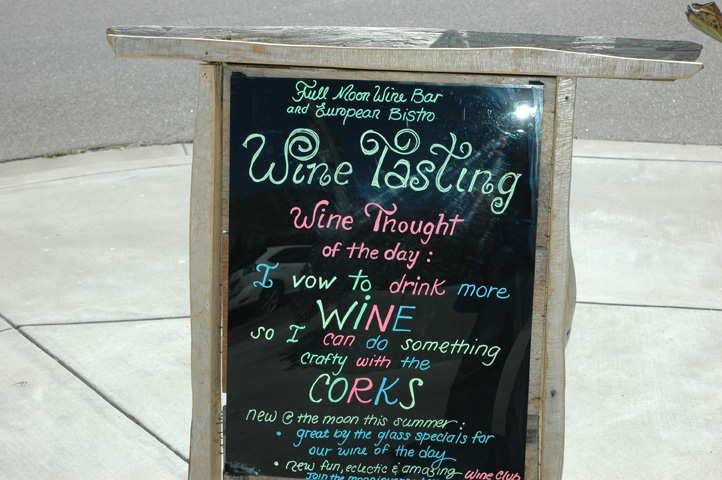 Full Moon Wine Bar
and European Bistro
Wine Tasting
Wine Thought
of the day:
I vow to drink more
WINE
so I can do something
crafty with the
CORKS
new @ the moon this summer:
• great by the glass specials for
our wine of the day
• new fun, eclectic & amazing Wine Club
Join the moon